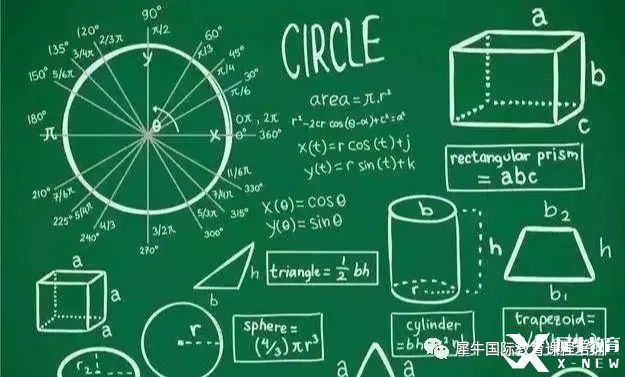 90°
120°
π/2
60°
135°
2/3π
π/3
45°
3/4π
y
π/4
150°
5/6π
30°
π/6
180°
π
θ
x
0π, 2π
0°
360°
210°
7/6π
11/6π
330°
225°
5/4π
7/4π
315°
240°
4/3
3/2π
5/3π
300°
270°
CIRCLE
area = π.r²
r²-2cr cos(θ-α)+c²=a²
x(t)=r cos(t)+j
y(t)=r sin(t)+k
x(θ)=cosθ
y(θ)=sinθ
a
b
c
rectangular prism
= abc
a
a
a
h
b
triangle = ½ bh
b
h
r
b₂
h
b₁
r
sphere =
(4/3) πr³
cylinder
trapezoid=
r₂
a
a
犀牛国际教育
犀牛教育
X-NEW